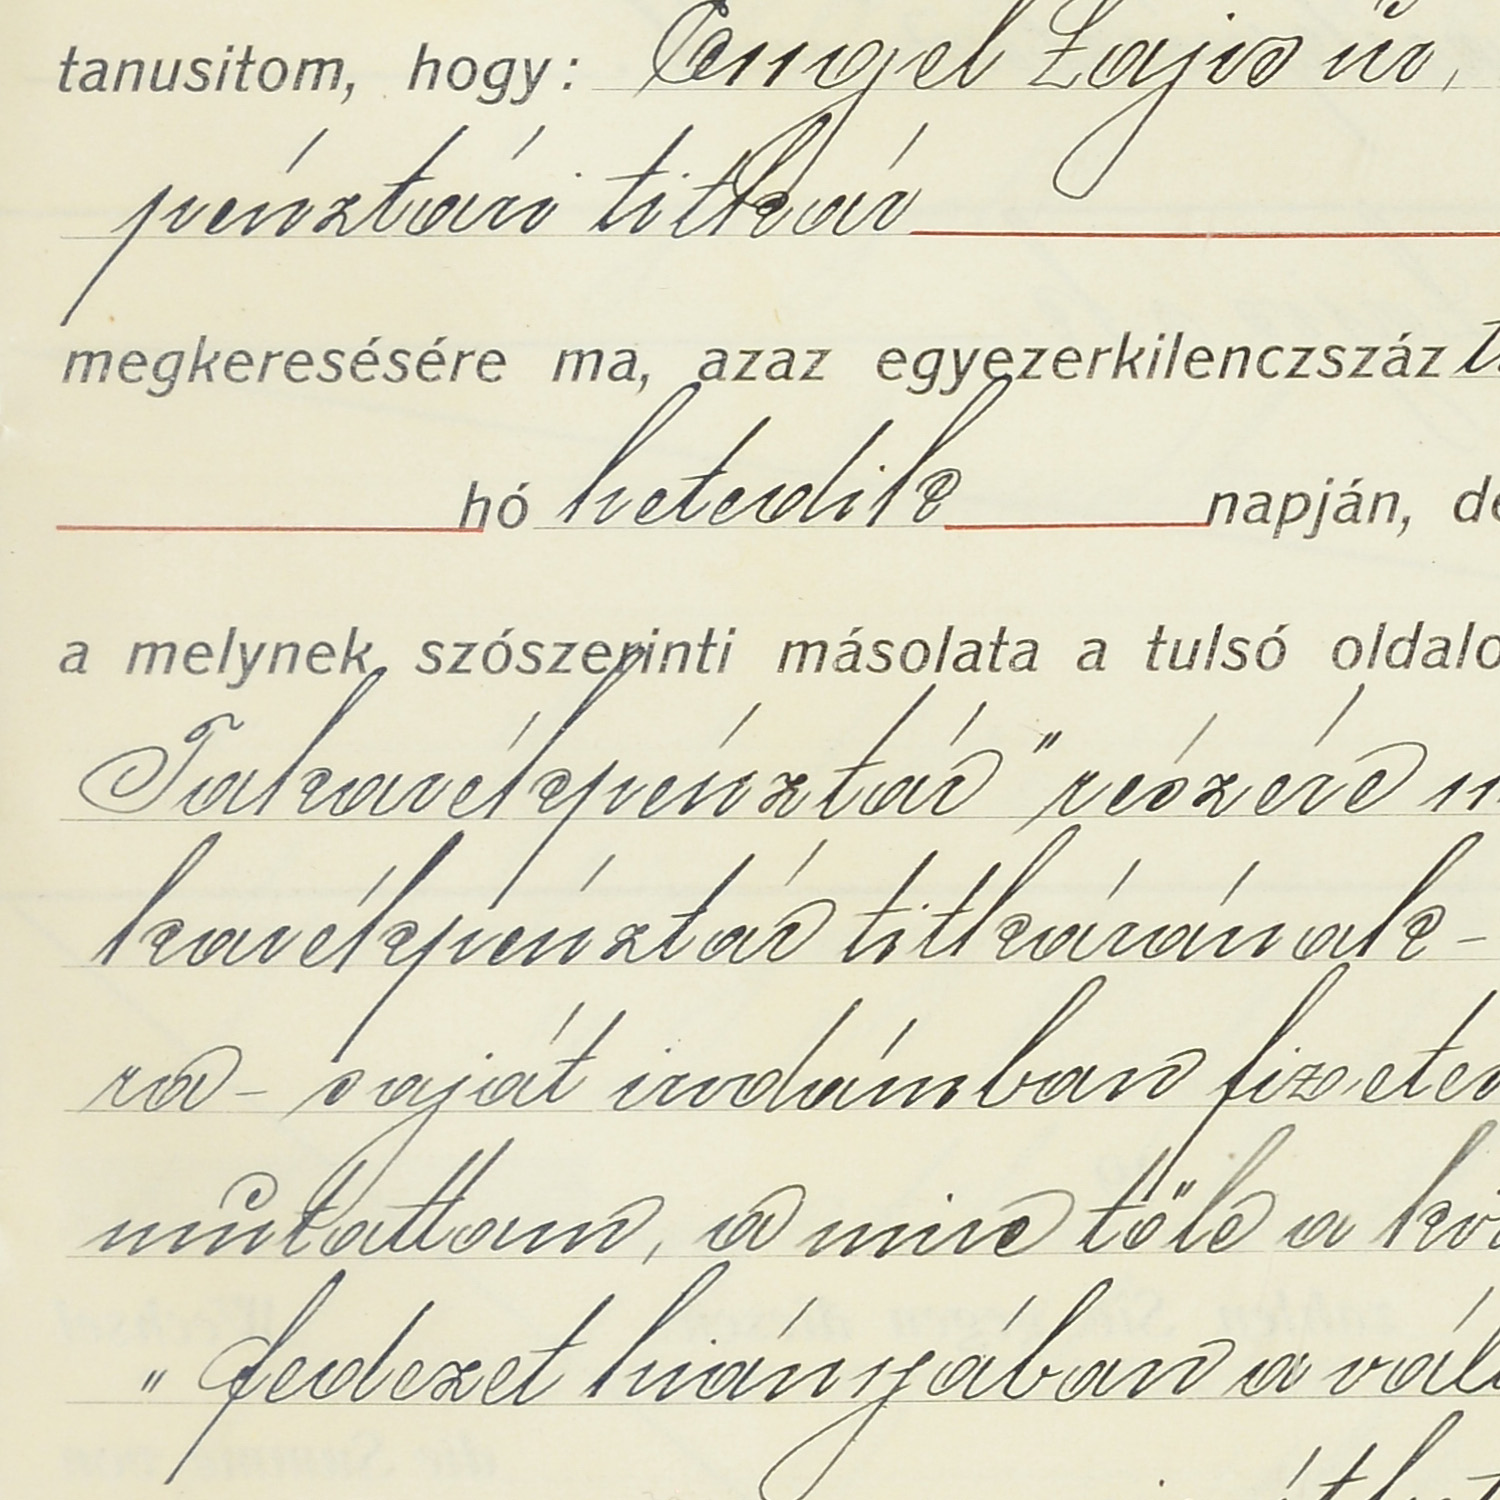 tanusitom, hogy: Engel Lajos úr,
pénztári titkár
megkeresésére ma, azaz egyezerkilenczszáz
hó hetedik napján, de
a melynek szószerinti másolata a tulsó oldalo
Takarékpénztár" részére
karékpénztár titkárának-
ra- saját irodámban fizetés
mutattam, a mire tőle a kö
"fedezet hiányában a vál